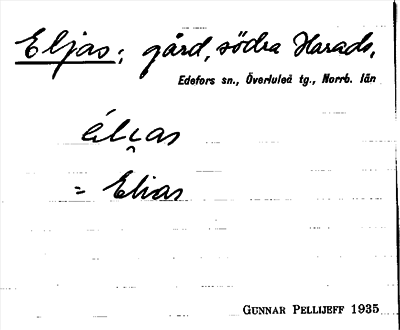 Eljas; gård, södra Harads,
Edefors sn., Överluleå tg., Norrb. län
éli̯as
= Elias
GUNNAR PELLIJEFF 1935